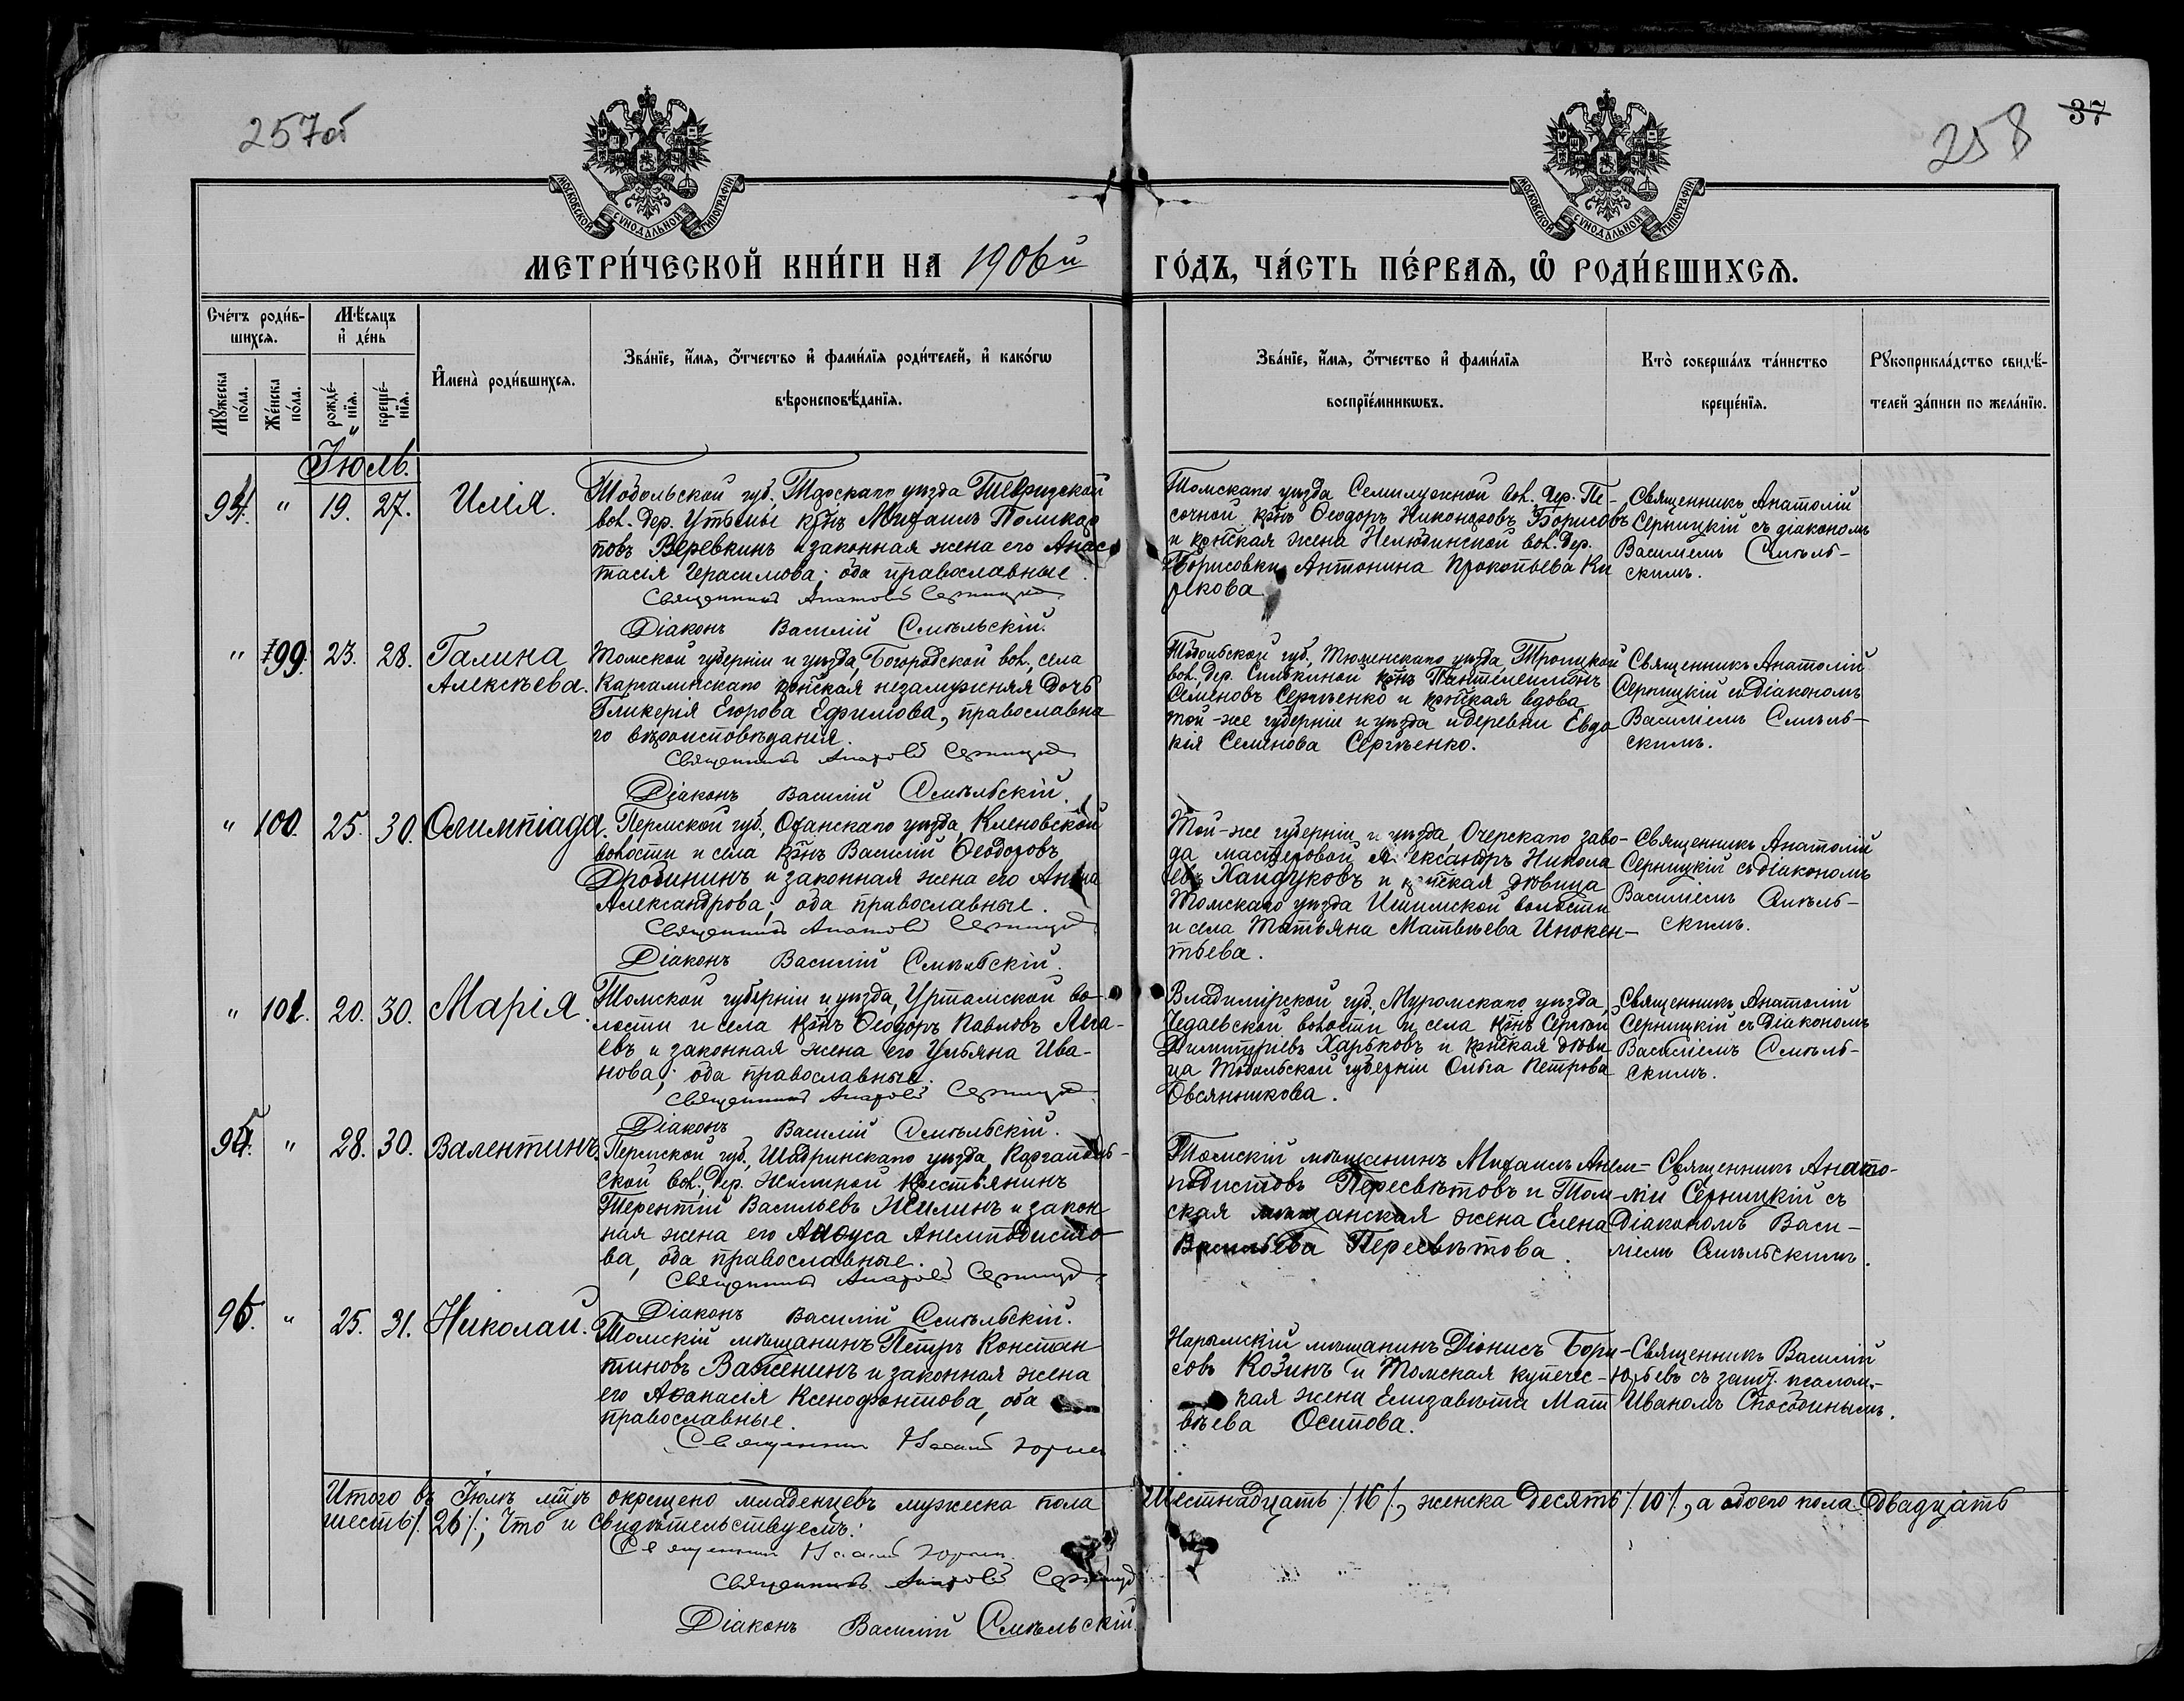 257об
258
37
МОСКОВСКОЙ СѴНОДАЛЬНОЙ ТИПОГРАФІИ
МОСКОВСКОЙ СѴНОДАЛЬНОЙ ТИПОГРАФІИ
МЕТРИ́ЧЕСКОЙ КНИ́ГИ НА 1906й ГО́ДЪ, ЧА́СТЬ ПЕ́РВАѦ, Ѡ РОДИ́ВШИХСѦ.
Сче́тъ роди́в-
шихсѧ.
Мꙋжеска по́ла.
Же́нска по́ла.
Мѣ́сѧцъ
и҆ де́нь
рожде́-
нїѧ.
креще́-
нїѧ.
И҆мена̀ роди́вшихсѧ.
Зва́нїе, и҆́мѧ, ѻ҆́тчество и҆ фами́лїѧ роди́телей, и҆ како́гѡ
вѣроисповѣ́данїѧ.
Зва́нїе, и҆́мѧ, ѻ҆́тчество и҆ фами́лїѧ
воспрїе́мникѡвъ.
Кто̀ соверша́лъ та́инство
креще́нїѧ.
Рꙋкоприкла́дство свидѣ́-
телей за́писи по жела́нїю.
Іюль.
94. " 19. 27. Илія.
Тобольской губ., Тарскаго уѣзда Тевризской
вол. дер. Утьмы крнъ Михаилъ Поликар
повъ Веревкинъ и законная жена его Анас
тасія Герасимова; оба православные.
Священникъ Анатолій Серницкій
Діаконъ Василій Смѣльскій.
Томскаго уѣзда Семилужной вол. дер. Пе-
сочной крнъ Ѳеодоръ Никоноровъ Борисовъ
и крнская жена Нелюбинской вол. дер.
Борисовки Антонина Прокопьева Ки
рекова
Священникъ Анатолій
Серницкій съ діакономъ
Василіемъ Смѣль-
скимъ.
" 99. 23. 28. Галина
Алексѣева.
Томской губерніи и уѣзда, Богородской вол., села
Каргалинскаго крнская незамужняя дочь
Гликерія Егорова Ефимова, православна
го вѣроисповѣданія.
Священникъ Анатолій Серницкій
Діаконъ Василій Смѣльскій.
Тобольской губ., Тюменскаго уѣзда, Троицкой
вол. дер. крнъ Пантелеимонъ
Семеновъ Сергѣенко и крнская вдова
той-же губерніи и уѣзда и деревни Евдо
кія Семенова Сергѣенко.
Священникъ Анатолій
Серницкій и діакономъ
Василіемъ Смѣль-
скимъ.
" 100. 25. 30. Олимпіада.
Пермской губ., Оханскаго уѣзда, Кленовской
волости и села крнъ Василій Ѳеодоровъ
Дробининъ и законная жена его Анна
Александрова; оба православные.
Священникъ Анатолій Серницкій
Діаконъ Василій Смѣльскій.
Той-же губерніи и уѣзда, Очерскаго заво-
да мастеровой Александръ Никола
евъ Хандуковъ и крнская дѣвица
Томскаго уѣзда Ишимской волости
и села Татьяна Матвѣева Инокен-
тьева.
Священникъ Анатолій
Серницкій съ діакономъ
Василіемъ Смѣль-
скимъ.
" 101. 20. 30. Марія.
Томской губерніи и уѣзда, Уртамской во-
лости и села крнъ Ѳеодоръ Павловъ
евъ и законная жена его Ульяна Ива-
нова; оба православные.
Священникъ Анатолій Серницкій
Діаконъ Василій Смѣльскій.
Владимірской губ., Муромскаго уѣзда,
Чедаевской волости и села крнъ Сергѣй
Димитріевъ Харьковъ и крнская дѣви
ца Тобольской губерніи Ольга Петрова
Овсянникова.
Священникъ Анатолій
Серницкій съ діакономъ
Василіемъ Смѣль-
скимъ.
95. " 28. 30. Валентинъ.
Пермской губ., Шадринскаго уѣзда, Каргаполь-
ской вол. дер. Жилиной крестьянинъ
Терентій Васильевъ Жилинъ и закон
ная жена его Анѳуса Анемподисто-
ва, оба православные.
Священникъ Анатолій Серницкій
Діаконъ Василій Смѣльскій.
Томскій мѣщанинъ Михаилъ Анем-
подистовъ Пересвѣтовъ и Том-
ская мѣщанская жена Елена
Васильева Пересвѣтова.
Священникъ Анато-
лій Серницкій съ
Діакономъ Васи-
ліемъ Смѣльскимъ.
96. " 25. 31. Николай.
Томскій мѣщанинъ Петръ Констан
тиновъ Важенинъ и законная жена
его Аѳанасія Ксенофонтова, оба
православные.
Священникъ Василій Юрьевъ
Нарымскій мѣщанинъ Діонисъ Бори-
совъ Козинъ и Томская купечес-
кая жена Елизавета Мат
вѣева Осипова.
Священникъ Василій
Юрьевъ съ псалом.
Иваномъ Способинымъ.
Итого въ Іюлѣ м-цѣ окрещено младенцевъ мужеска пола Шестнадцать /16/, женска десять /10/, а обоего пола двадцать
шесть /26/; Что и свидѣтельствуемъ:
Священникъ Василій Юрьевъ
Священникъ Анатолій Серницкій
Діаконъ Василій Смѣльскій.